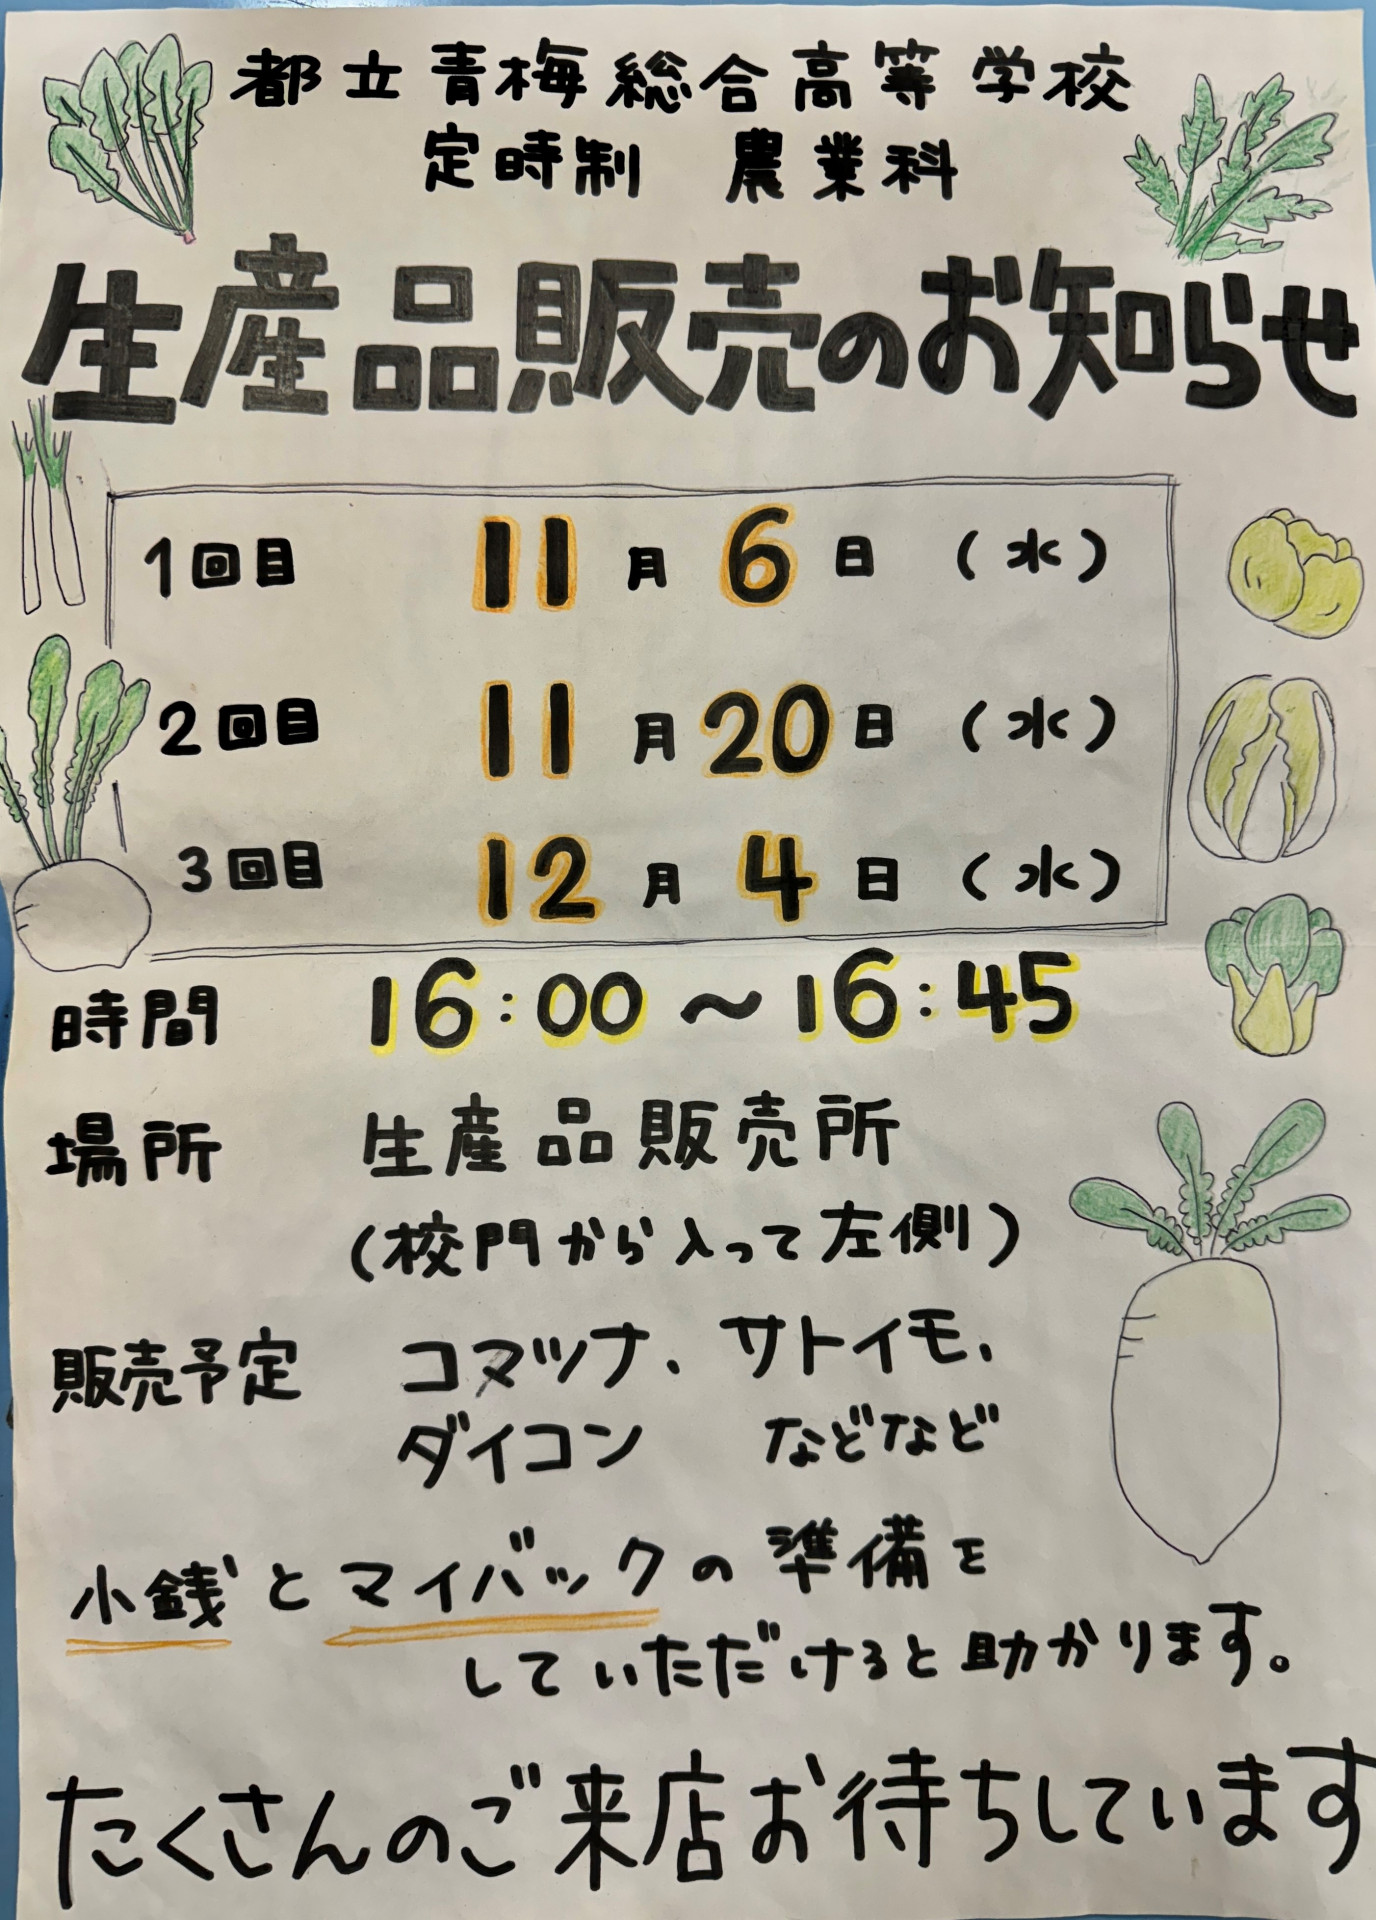 都立青梅総合高等学校
定時制 農業科
生産品販売のお知らせ
1回目 11月6日(水)
2回目 11月20日(水)
3回目 12月4日(水)
時間 16:00～16:45
場所 生産品販売所
(校門から入って左側)
販売予定 コマツナ、サトイモ、
ダイコン などなど
小銭とマイバックの準備を
していただけると助かります。
たくさんのご来店お待ちしています